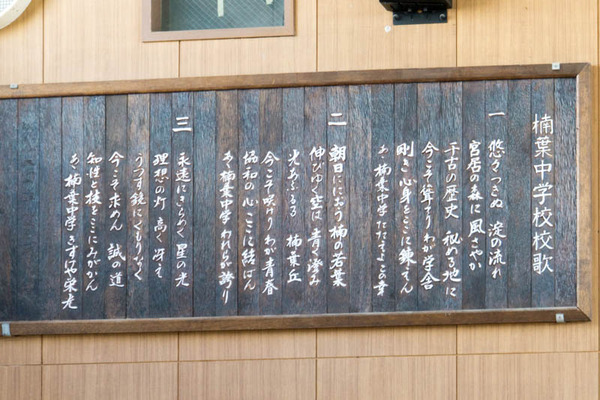 楠葉中学校校歌
一 悠々つきぬ 淀の流れ
宮居の森に風さやか
千古の歴史 秘める地に
今こそ聳ゆ わが学舎
剛き心身をここに錬えん
あゝ楠葉中学 たたえよこの幸
二 朝日ににおう楠の若葉
伸びゆく空は青く澄み
光あふるる 楠葉丘
今こそ咲けり わが青春
協和の心 ここに結ばん
あゝ楠葉中学 われらが誇り
三 永遠にきらめく星の光
理想の灯 高く冴え
うつす鏡にくもりなく
今こそ求めん 誠の道
知性と技をここにみがかん
あゝ楠葉中学 きずけや栄光